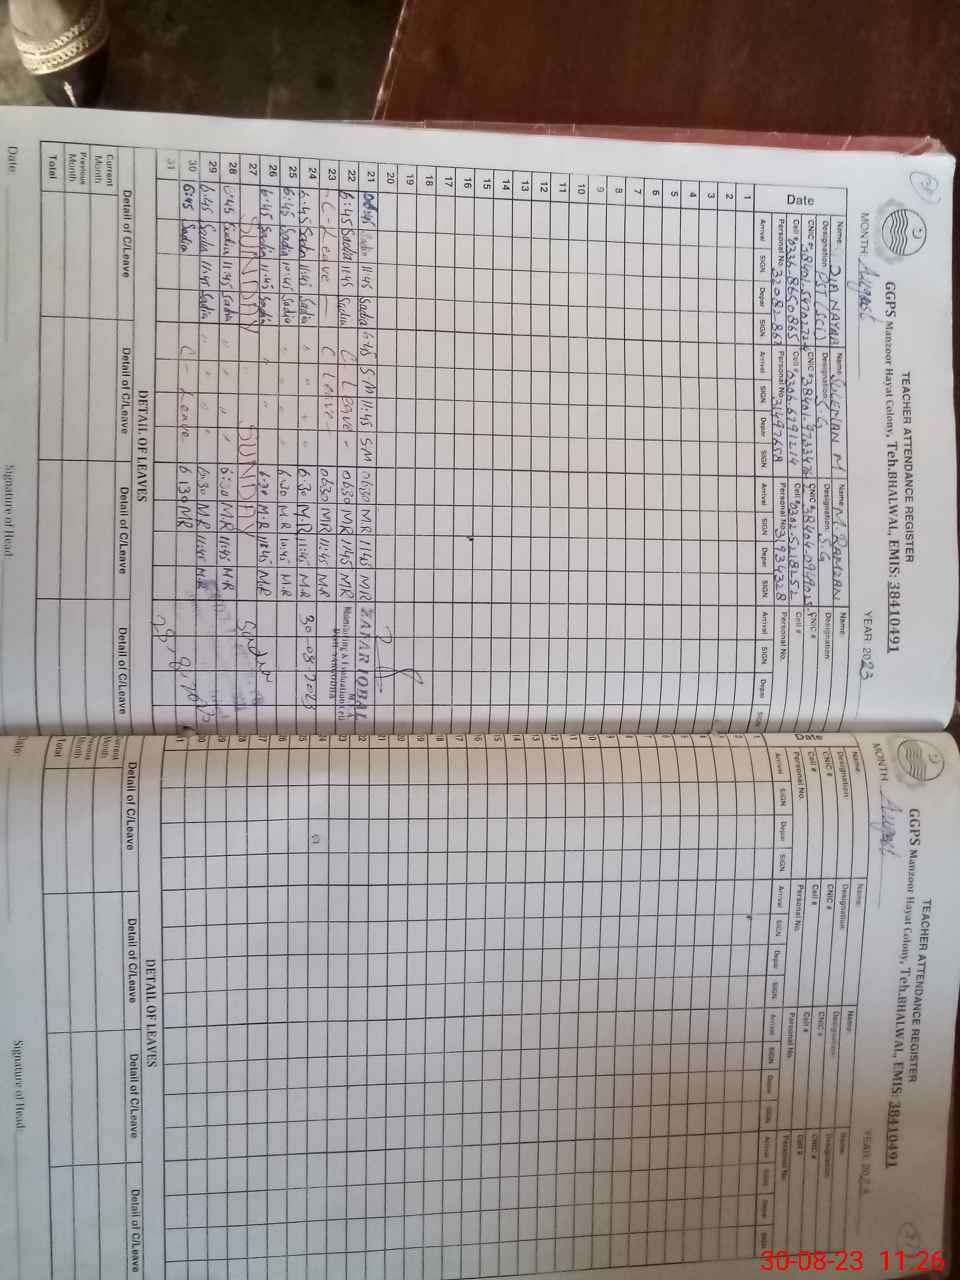 TEACHER ATTENDANCE REGISTER
GGPS Manzoor Hayat Colony, Teh.BHALWAL, EMIS: 38410491
MONTH August YEAR 2023
Date
Name: Name: Name: M. RAMZAN Name:
Designation PST (Sci) Designation S.G Designation S.G Designation:
CNIC # CNIC # CNIC # CNIC #
Cell # 0336-8650865 Cell # 0306.6791214 Cell # 0302-5218252 Cell #
Personal No. 32082867 Personal No. 31497658 Personal No. 31934328 Personal No.
Arrival SIGN. Depar SIGN. Arrival SIGN. Depar SIGN. Arrival SIGN. Depar SIGN. Arrival SIGN. Depar SIGN.
1
2
3
4
5
6
7
8
9
10
11
12
13
14
15
16
17
18
19
20
21 11:45 Sadia 6:45 SM 11:45 SM 0630 M.R 11:45 MR ZAFAR IQBAL
22 6:45 Sadia 11:45 Sadia C Leave - 0630 MR 11:45 MR Monitoring & Evaluation Cell
23 - C - Leave - C Leave - 0630 MR 11:45 MR
24 6:45 Sadia 11:45 Sadia " " " 6:30 M.R 11:45 M.R 30-08-2023
25 6:45 Sadia 10:45 Sadia " " " 6:30 M.R 10:45 M.R
26 6:45 Sadia 11:45 Sadia " " 6:30 M.R 11:45 M.R
27 SUNDAY SUNDAY Sadia
28 6:45 Sadia 11:45 Sadia " " " 6:30 M.R 11:45 M.R
29 6:45 Sadia 11:45 Sadia " " " 6:30 M.R 11:45 M.R
30 6:45 Sadia C - Leave 6:30 MR
31
DETAIL OF LEAVES
Detail of C/Leave Detail of C/Leave Detail of C/Leave Detail of C/Leave
Current Month
Previous Month
Total
Date: Signature of Head:
TEACHER ATTENDANCE REGISTER
GGPS Manzoor Hayat Colony, Teh.BHALWAL, EMIS: 38410491
MONTH August YEAR 2023
Date
Name: Name: Name: Name:
Designation: Designation: Designation: Designation:
CNIC # CNIC # CNIC # CNIC #
Cell # Cell # Cell # Cell #
Personal No. Personal No. Personal No. Personal No.
Arrival SIGN. Depar SIGN. Arrival SIGN. Depar SIGN. Arrival SIGN. Depar SIGN. Arrival SIGN. Depar SIGN.
1
2
3
4
5
6
7
8
9
10
11
12
13
14
15
16
17
18
19
20
21
22
23
24
25
26
27
28
29
30
31
DETAIL OF LEAVES
Detail of C/Leave Detail of C/Leave Detail of C/Leave Detail of C/Leave
Current Month
Previous Month
Total
Date: Signature of Head:
30-08-23 11:26